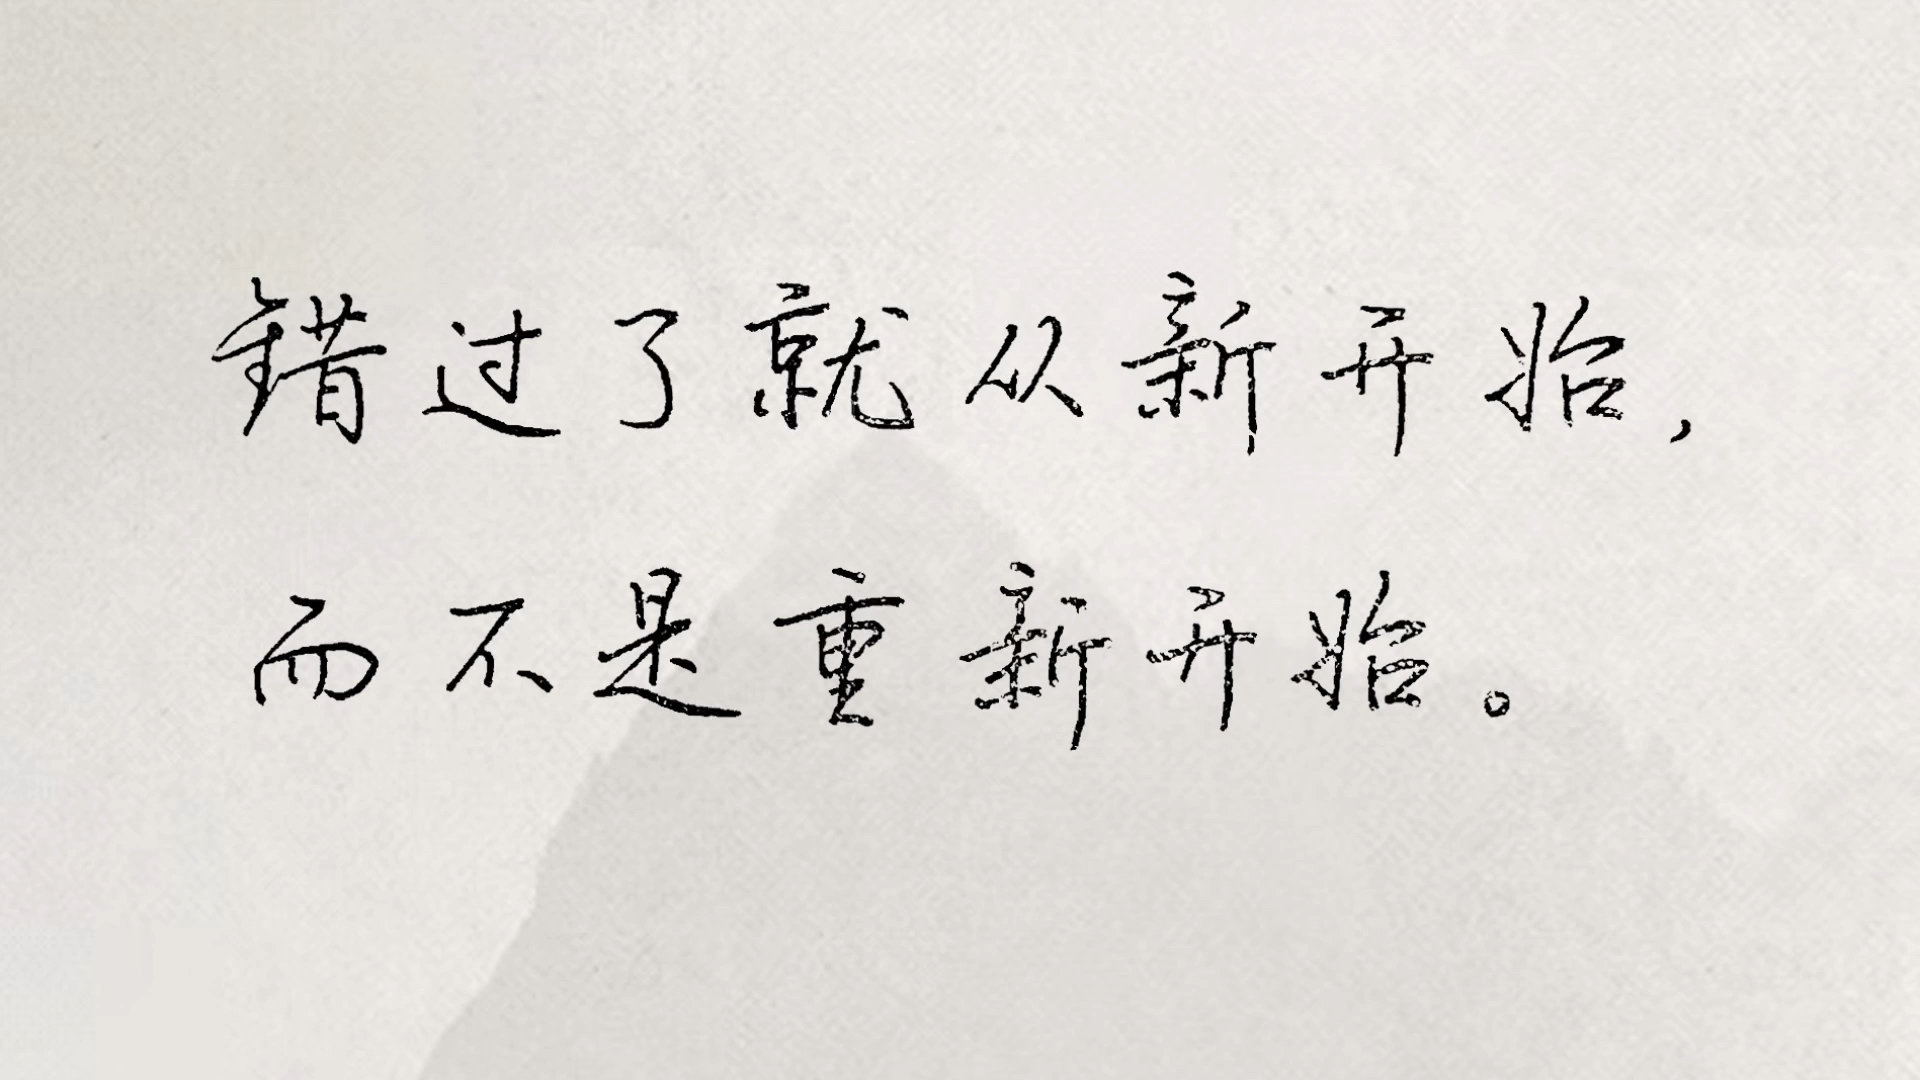 错过了就从新开始，
而不是重新开始。